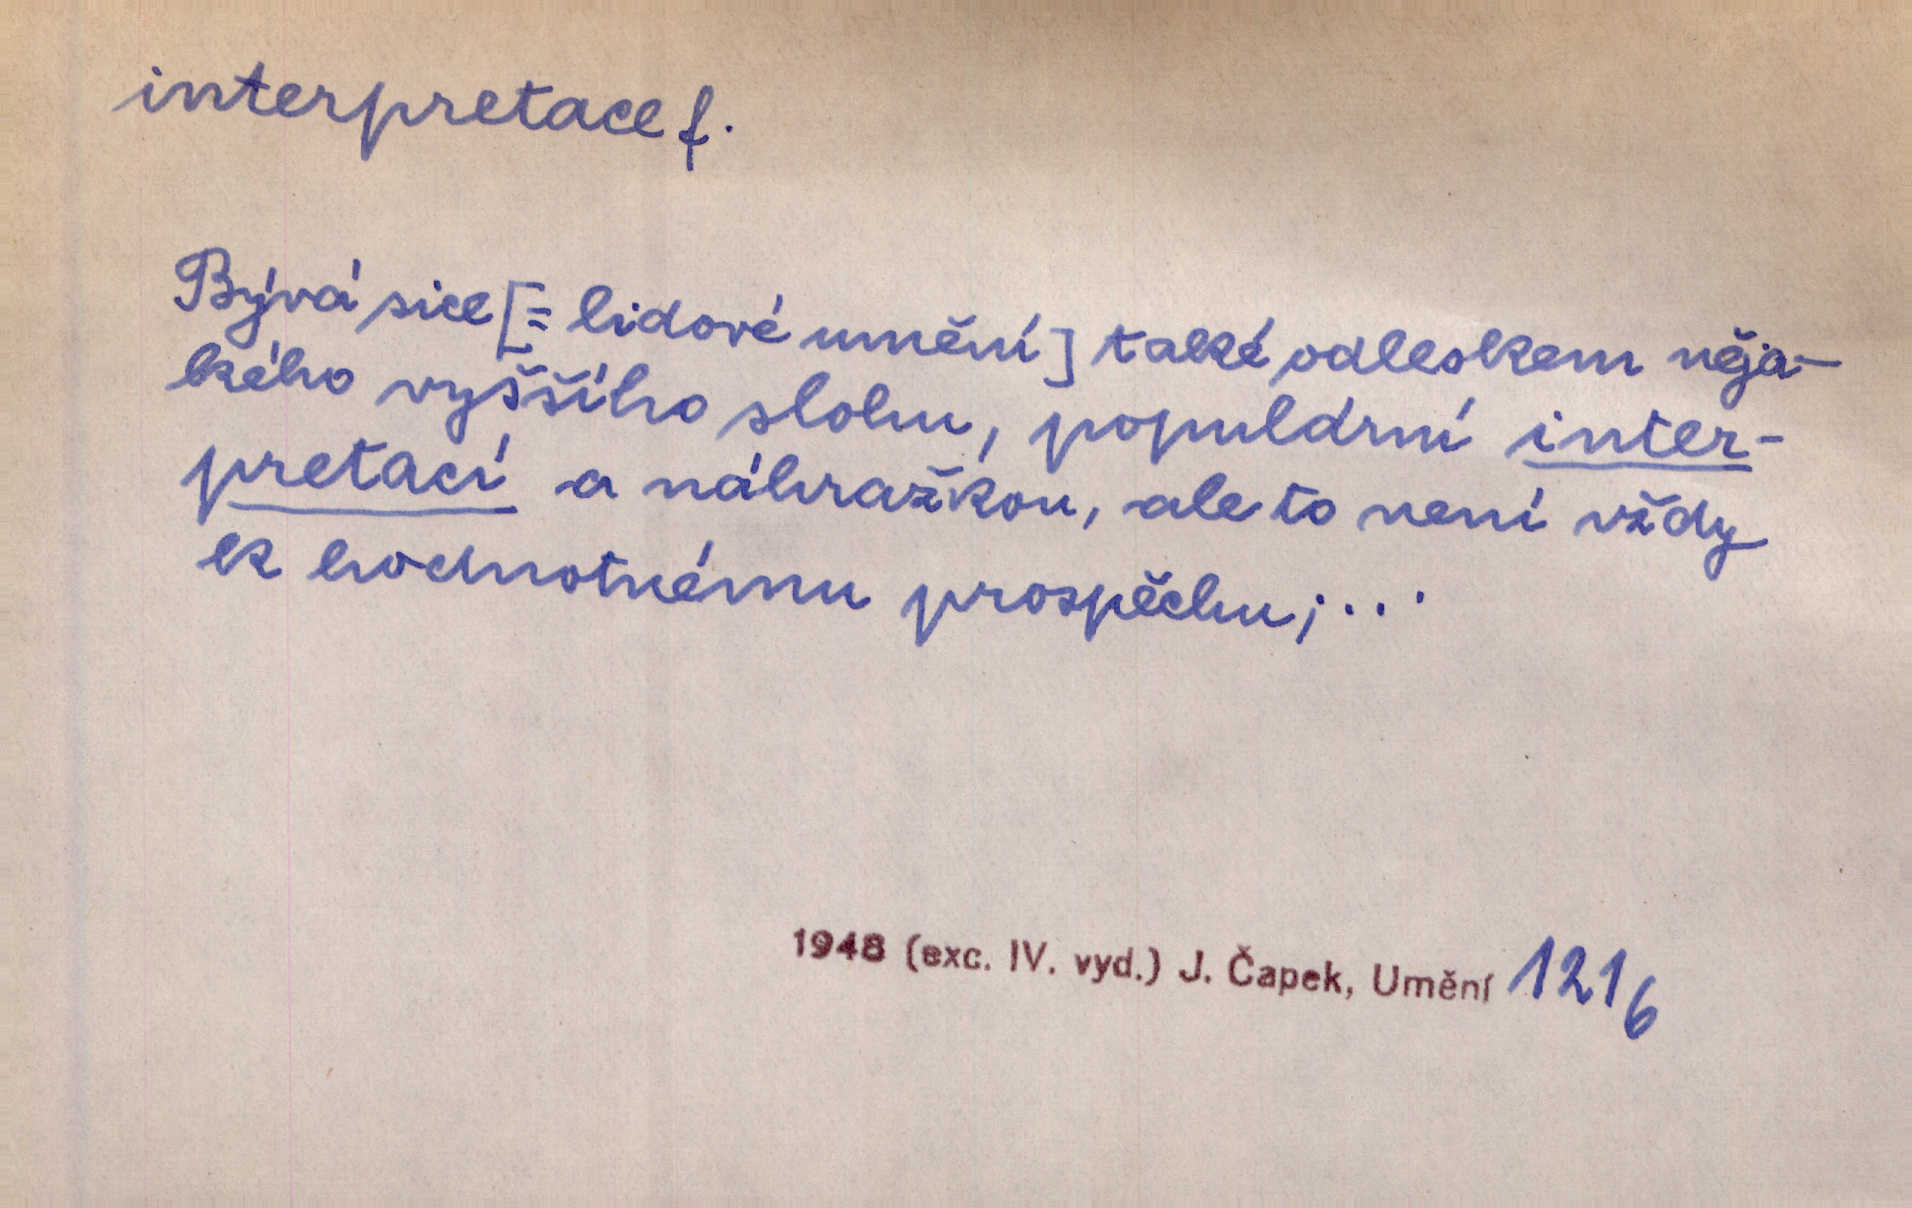 interpretace f.
Bývá sice [= lidové umění] také odleskem něja-
kého vyššího slohu, populární inter-
pretací a náhražkou, ale to není vždy
k hodnotnému prospěchu; ...
1948 (exc. IV. vyd.) J. Čapek, Umění 121/6